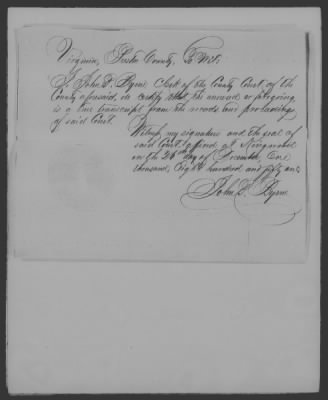 Virginia, Preston County, To Wit:
I John P. Byrne Clerk of the County Court of the
County aforesaid, do certify that the annexed or foregoing
is a true transcript from the records and proceedings
of said Court.
Witness my signature and the seal of
said Court affixed at Kingwood
on the 26th day of December, One
thousand, Eight hundred, and fifty one.
John P. Byrne